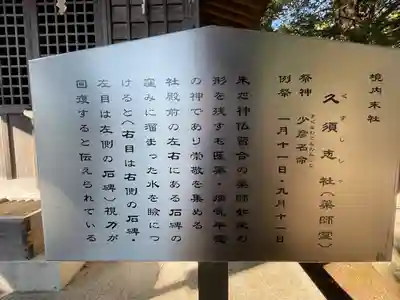 境内末社
久須志社（薬師堂）
くすししゃ
祭神 少彦名命
すくなひこなのみこと
例祭 一月十一日・九月十一日
未だ神仏習合の薬師如来の
形を残すも医薬・病気平癒
の神であり崇敬を集める
社殿前の左右にある石碑の
窪みに溜まった水を瞼につ
けると（右目は右側の石碑・
左目は左側の石碑）視力が
回復すると伝えられている